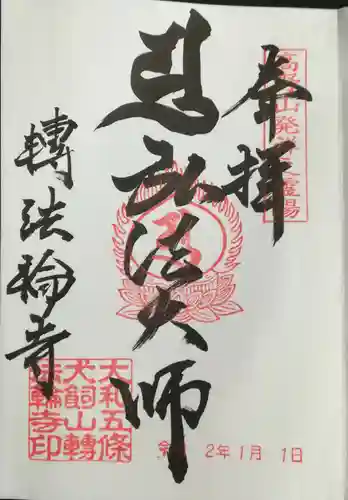 奉拝
高野山発祥之霊場
弘法大師
轉法輪寺
大和五條
犬飼山轉
法輪寺印
令 2年1月1日